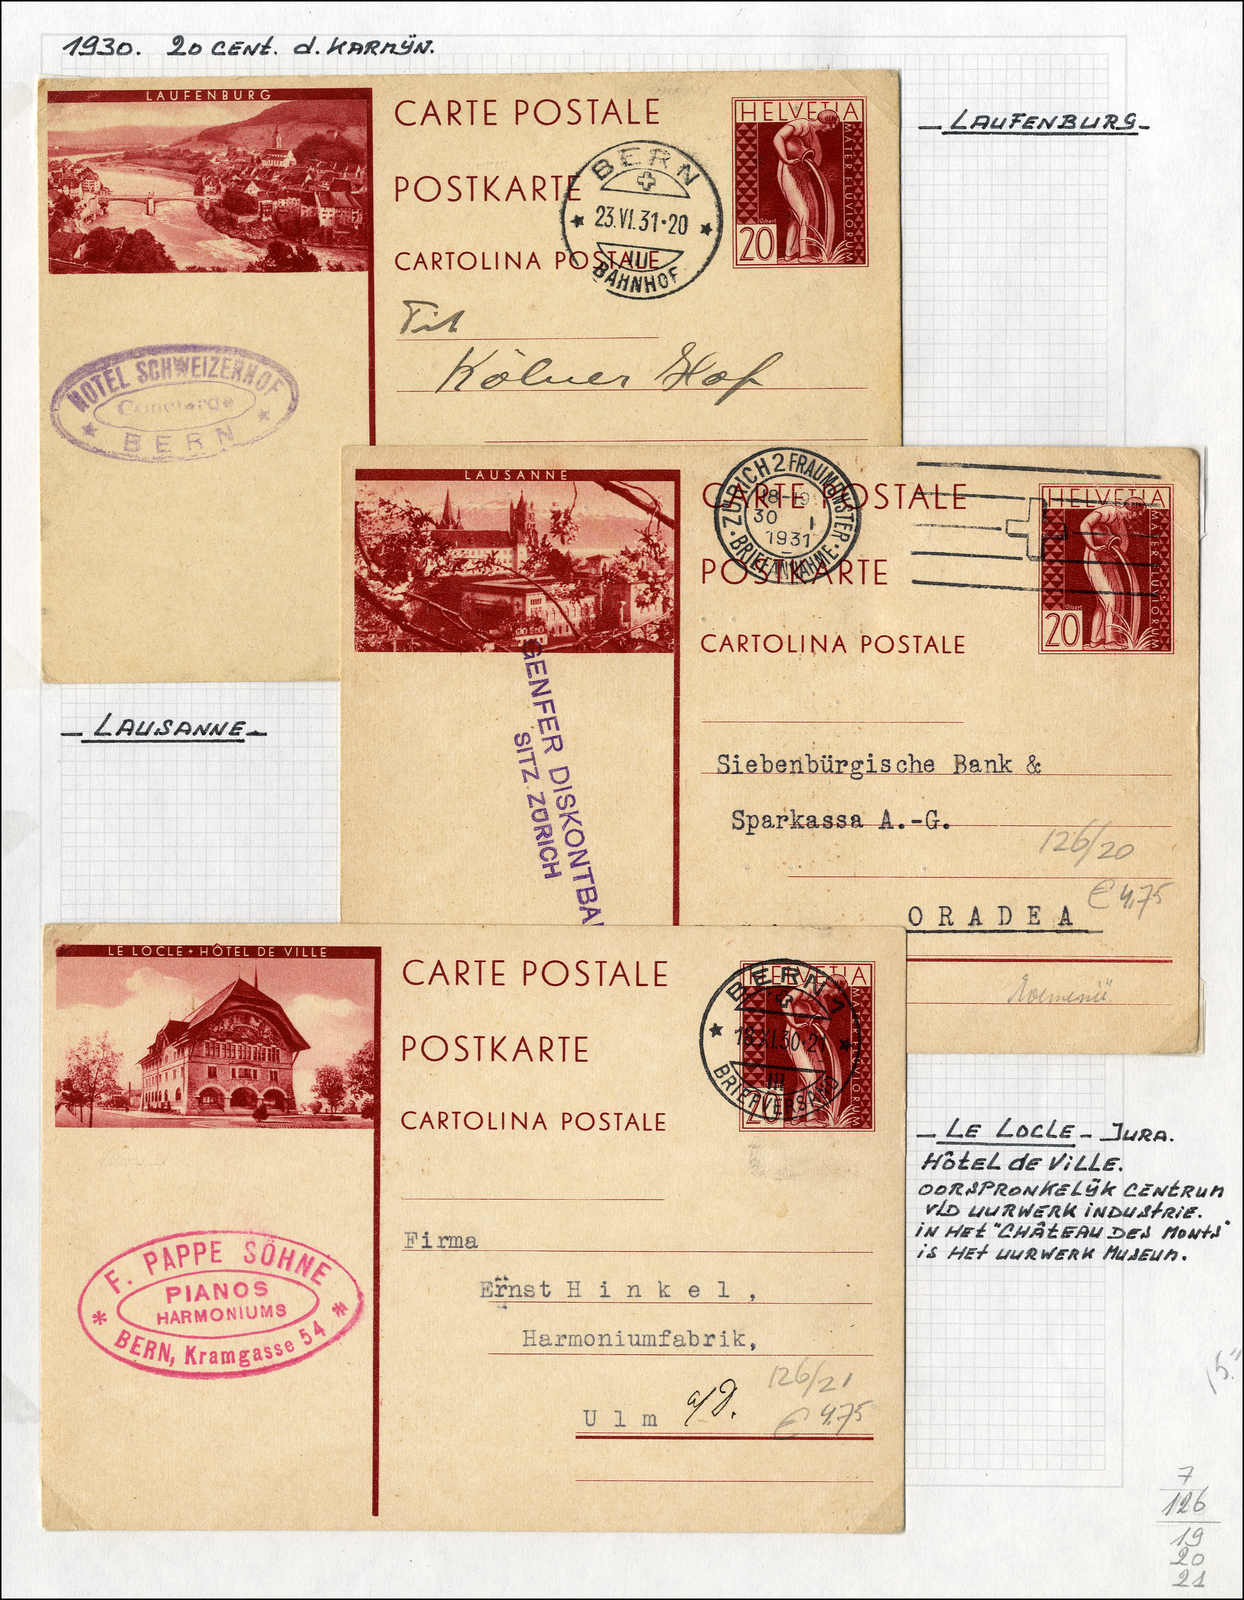 1930. 20 CENT. d. KARMIJN.
LAUFENBURG
CARTE POSTALE
POSTKARTE
CARTOLINA POSTALE
BERN
23.VI.31-20
III
BAHNHOF
HELVETIA
MATER FLUVIORUM
20
Tit
Kölner Hof
HOTEL SCHWEIZERHOF
Concierge
BERN
- LAUFENBURG -
LAUSANNE
CARTE POSTALE
POSTKARTE
CARTOLINA POSTALE
ZÜRICH 2 FRAUMÜNSTER
18-19
30 I
1931
BRIEFANNAHME
HELVETIA
MATER FLUVIORUM
20
GENFER DISKONTBA
SITZ ZÜRICH
Siebenbürgische Bank &
Sparkassa A.-G.
126/20
€ 4,75
ORADEA
Roemenië
- LAUSANNE -
LE LOCLE • HÔTEL DE VILLE
CARTE POSTALE
POSTKARTE
CARTOLINA POSTALE
BERN 1
18.XI.30-21
III
BRIEFVERSAND
HELVETIA
MATER FLUVIORUM
20
F. PAPPE SÖHNE
PIANOS
HARMONIUMS
BERN, Kramgasse 54
Firma
Ernst Hinkel,
Harmoniumfabrik,
Ulm a/D.
126/21
€ 4,75
- LE LOCLE - JURA.
HÔTEL DE VILLE.
OORSPRONKELIJK CENTRUM
V/D UURWERK INDUSTRIE.
IN HET "CHÂTEAU DES MONTS"
IS HET UURWERK MUSEUM.
7
126
19
20
21